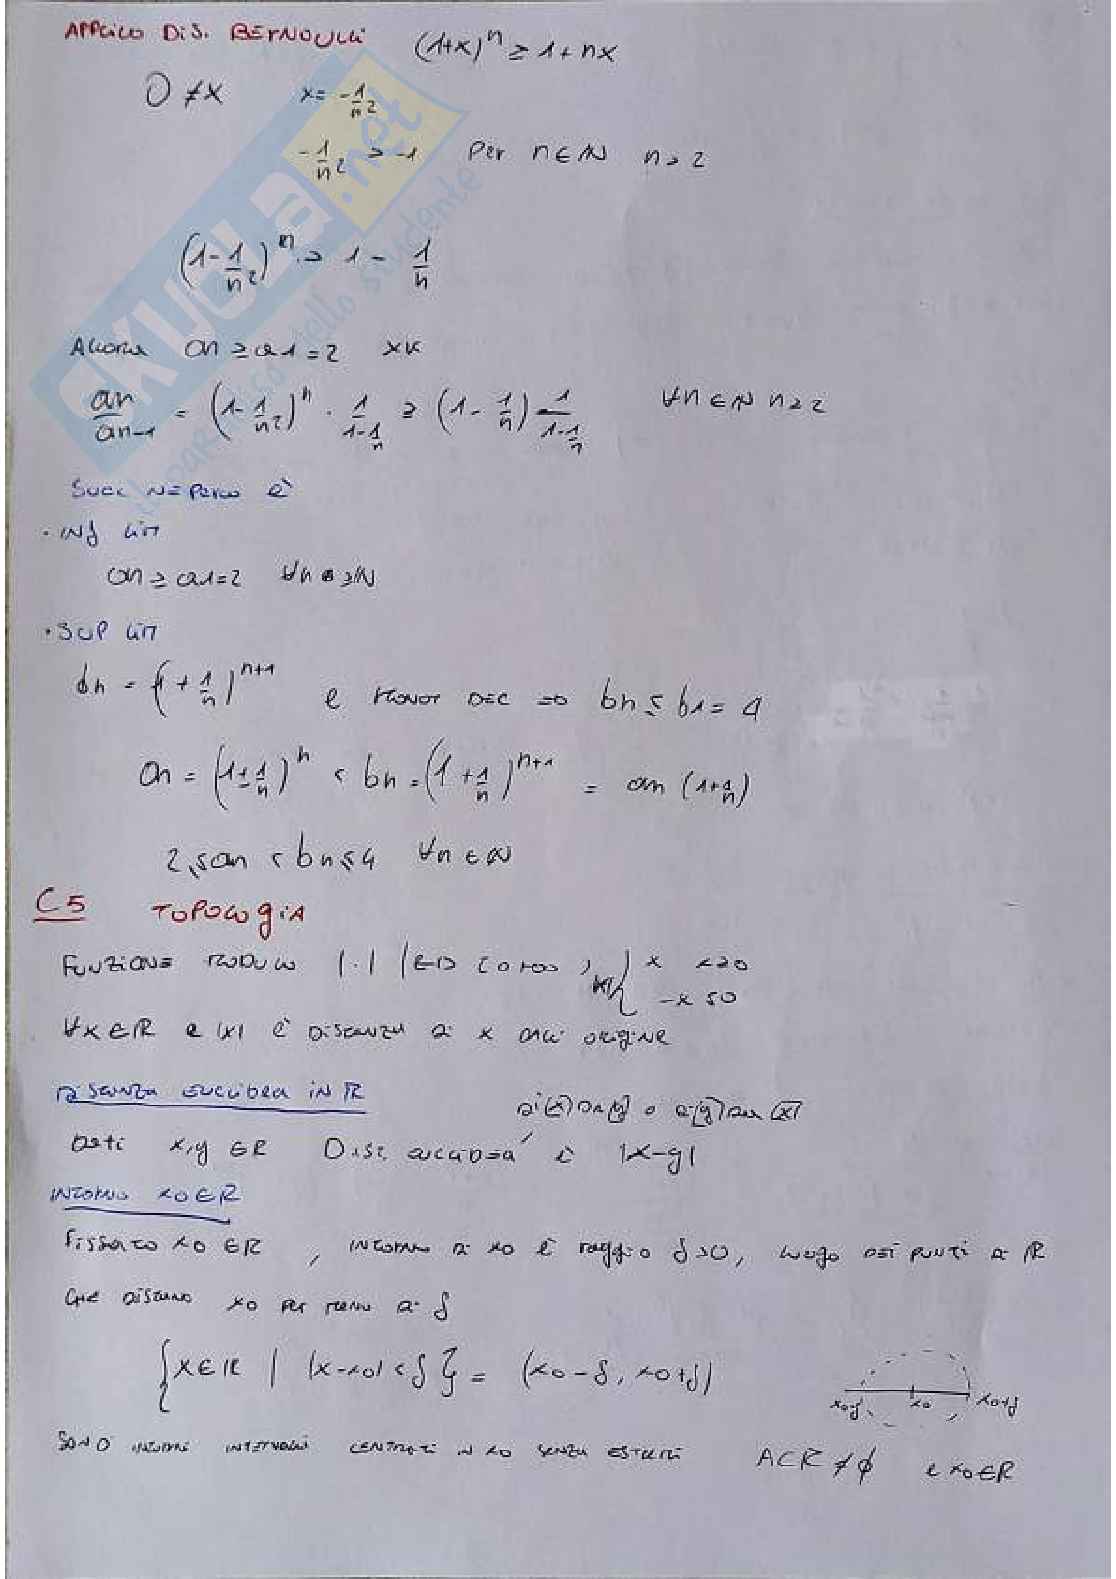 APPLICO DIS. BERNOULLI (1+x)^n ≥ 1+nx
0 ≠ x x = -1/n²
-1/n² > -1 per n∈ℕ n ≥ 2
(1 - 1/n²)^n > 1 - 1/n
Allora an ≥ a1 = 2 xk
an/an-1 = (1 - 1/n²)^n · 1/(1-1/n) ≥ (1 - 1/n) 1/(1-1/n) ∀n∈ℕ n≥2
SUCC NEPERO È
· INF LIM
an ≥ a1=2 ∀n ∈ ℕ
· SUP LIM
bn = (1 + 1/n)^n+1 e MONOT DEC => bn ≤ b1 = 4
an = (1+1/n)^n < bn = (1+1/n)^n+1 = an (1+1/n)
2 ≤ an < bn ≤ 4 ∀n ∈ ℕ
C5 TOPOLOGIA
FUNZIONE MODULO |·| |x| { x x≥0
-x ≤0
∀x∈ℝ e |x| è DISTANZA di x DALL' ORIGINE
DISTANZA EUCLIDEA IN ℝ
di (x) DA (y) o di (y) DA (x)
Dati x,y ∈ℝ Dist. EUCLIDEA è |x-y|
INTORNO x0∈ℝ
Fissato x0 ∈ℝ, INTORNO di x0 è raggio δ>0, luogo DEI PUNTI di ℝ
CHE DISTANO x0 per meno di δ
{x∈ℝ | |x-x0| < δ} = (x0-δ, x0+δ)
x0-δ x0 x0+δ
SONO INTORNI INTERVALLI CENTRATI IN x0 SENZA ESTREMI A⊂ℝ ≠ ∅ e x0∈ℝ
SKUOLA.net